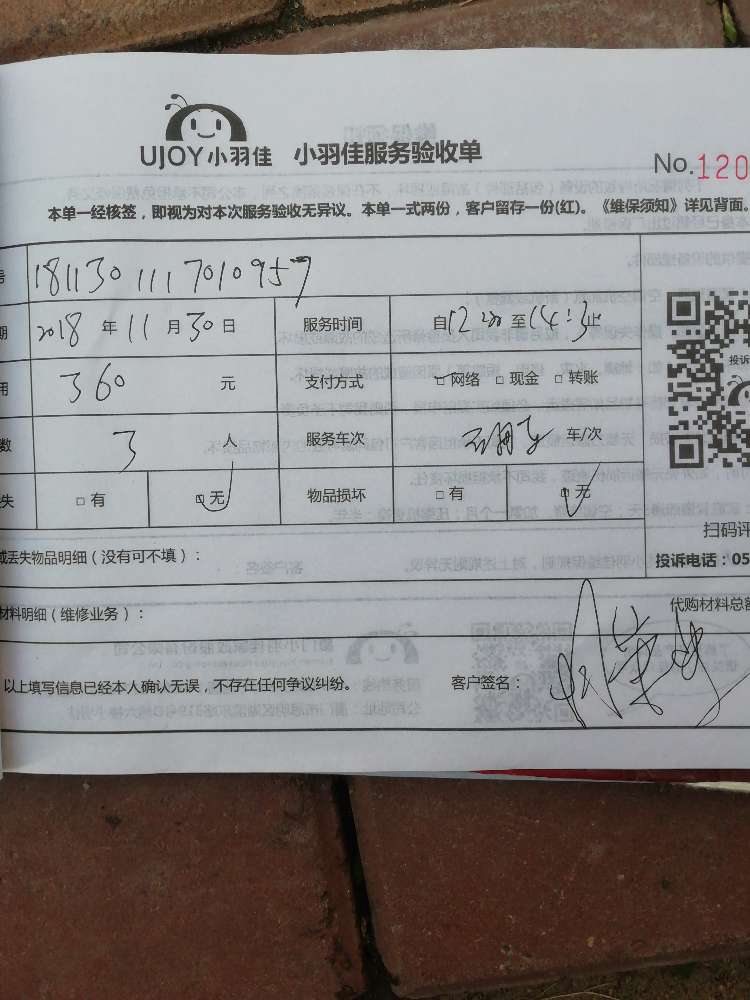 UJOY小羽佳 小羽佳服务验收单
No.120
本单一经核签，即视为对本次服务验收无异议。本单一式两份，客户留存一份(红)。《维保须知》详见背面。
号 1811301117010957
期 2018 年 11 月 30 日 服务时间 自 12:00 至 14:30 止
用 360 元 支付方式 □网络 □现金 □转账
数 3 人 服务车次 车/次
失 □有 □无 物品损坏 □有 □无
投诉
扫码评
或丢失物品明细（没有可不填）：
投诉电话：05
材料明细（维修业务）：
代购材料总额
以上填写信息已经本人确认无误，不存在任何争议纠纷。 客户签名：